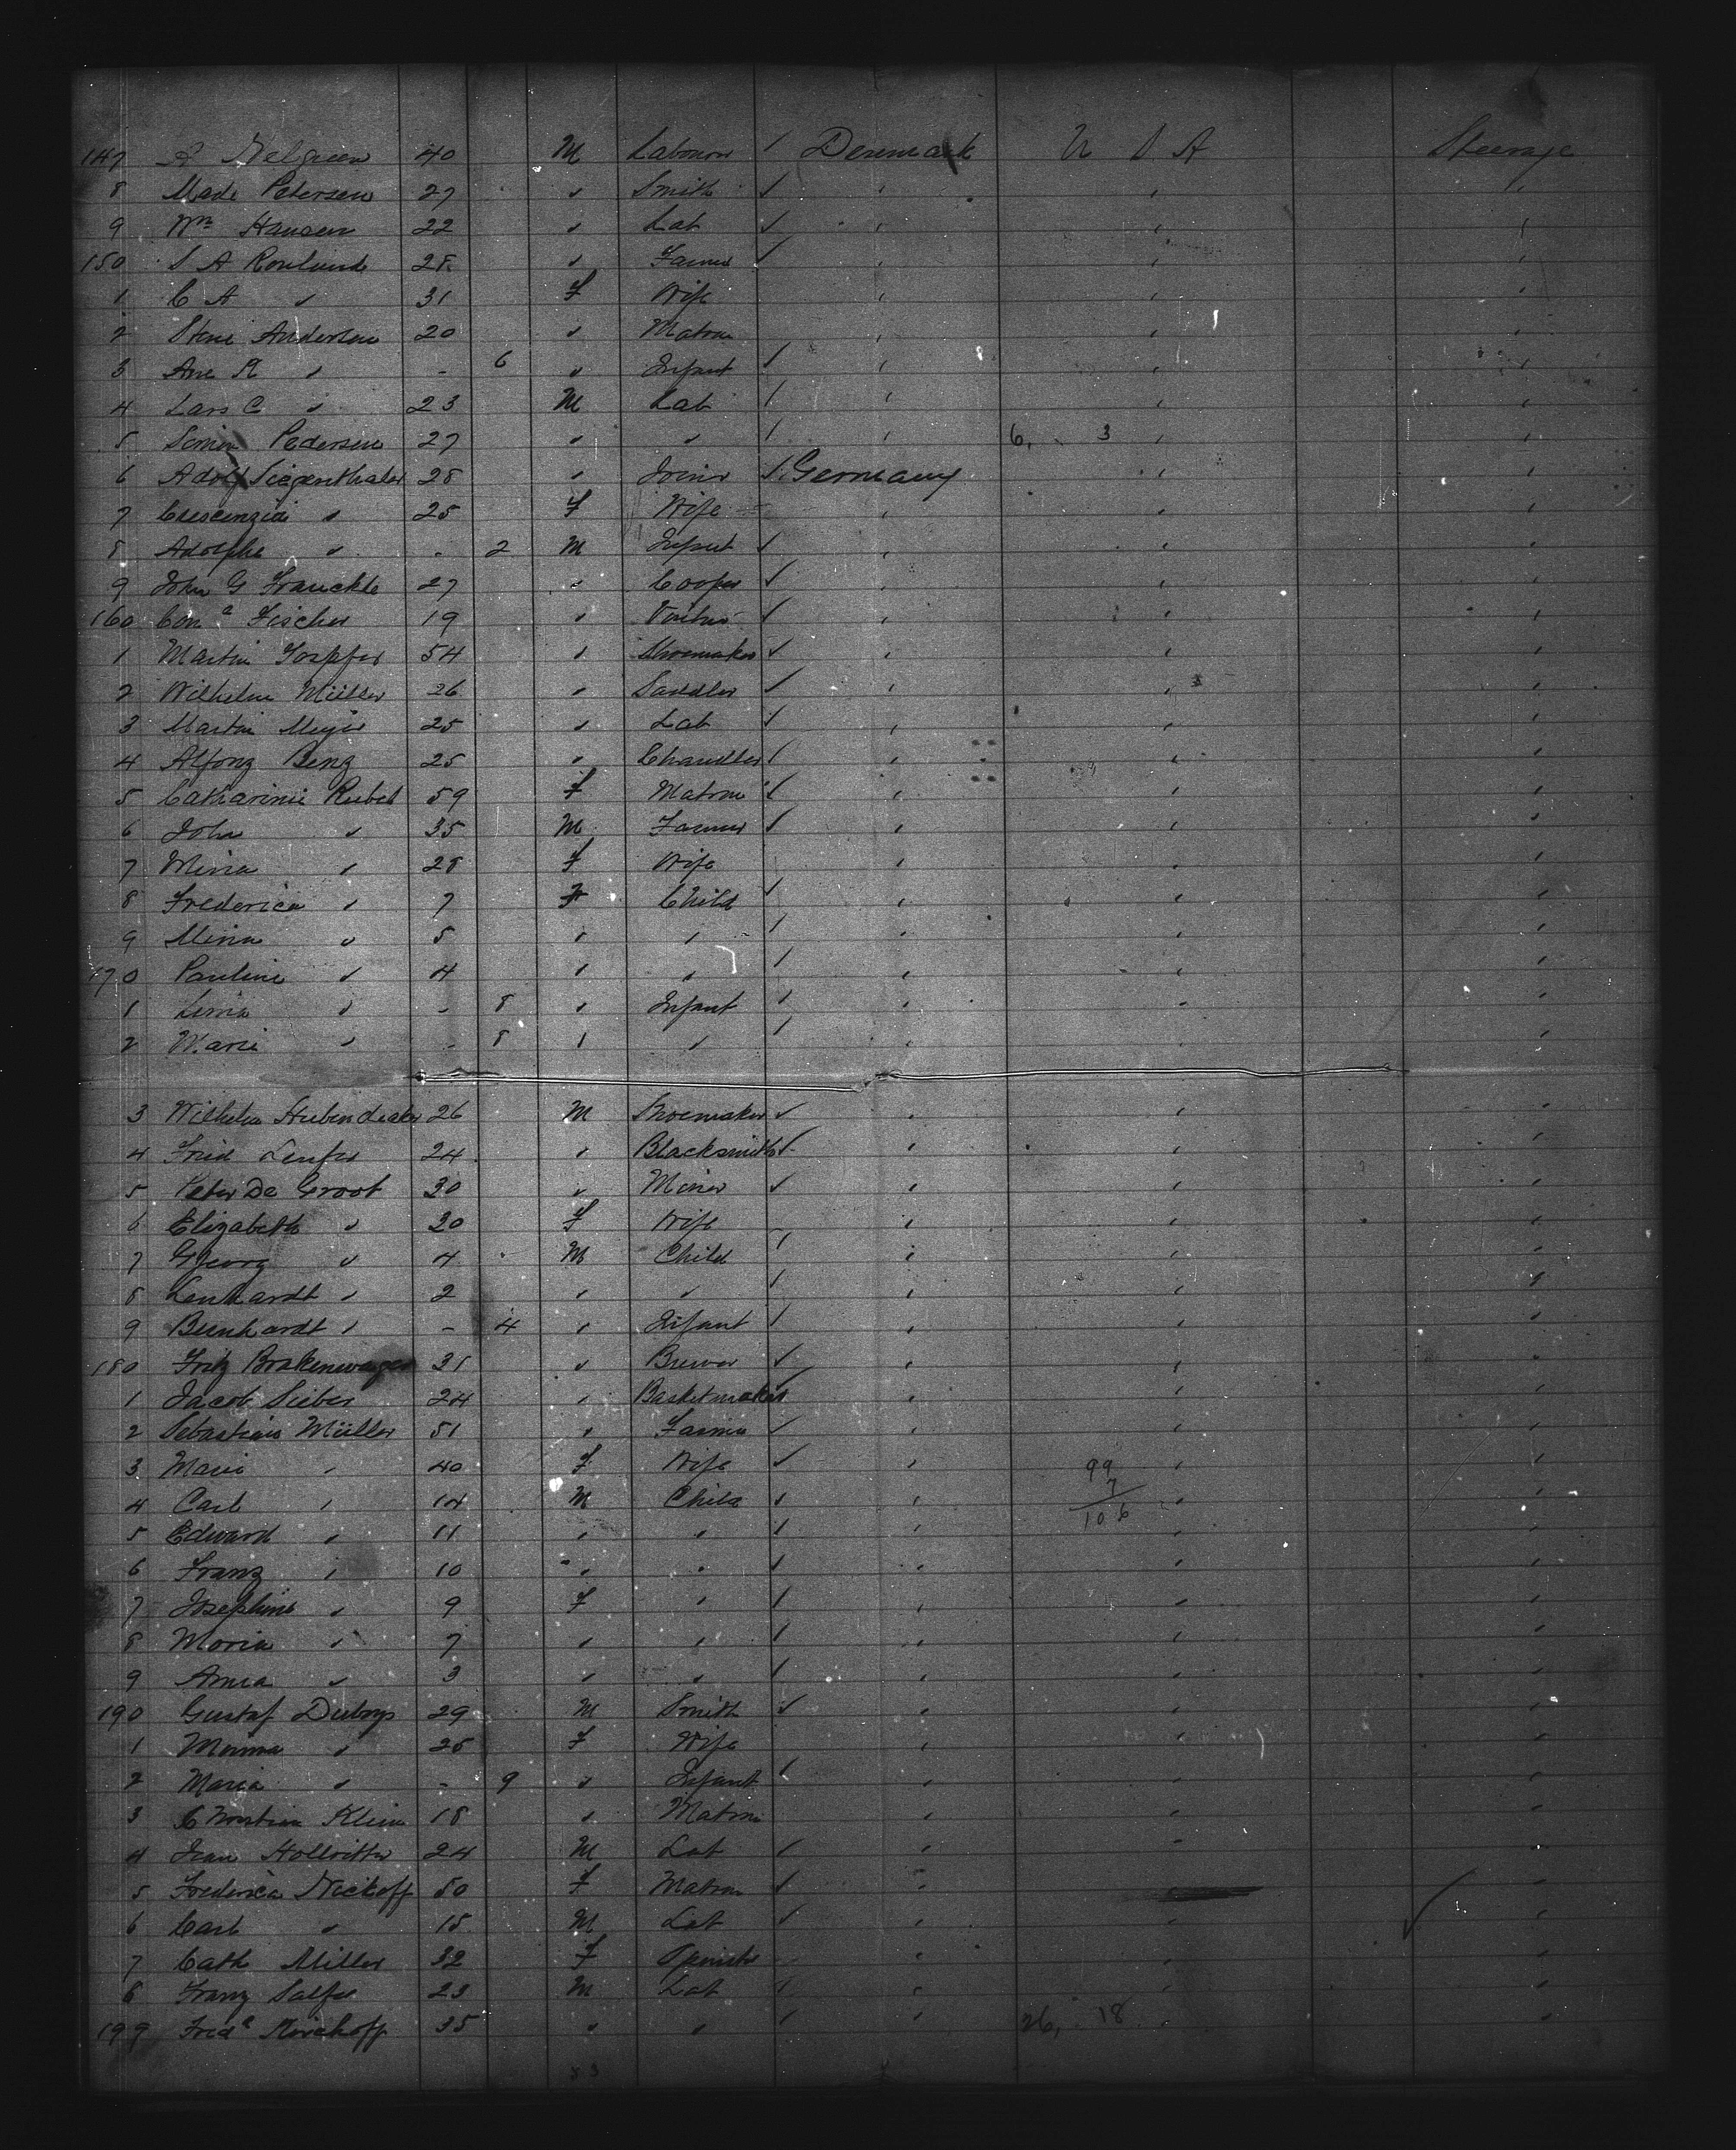 147 A Nelgreen 40 M Labourer / Denmark U S A Steerage
8 Mads Petersen 27 " Smith / " " "
9 Wm Hansen 22 " Lab / " " "
150 S A Rowlund 28 " Farmer / " " "
1 C A " 31 F Wife " " "
2 Stene Andersen 20 " Matron " " "
3 Ane K " - 6 " Infant / " " "
4 Lars C " 23 M Lab / " " "
5 Simon Pedersen 27 " " / " 6, 3 " "
6 Adolf Siegenthaler 28 " Joiner / Germany " "
7 Crescenzia " 25 F Wife " " "
8 Adolphe " - 2 M Infant / " " "
9 John G Franckle 27 " Cooper / " " "
160 Fischer 19 " / " " "
1 Martin 54 " Shoemaker / " " "
2 Wilhelm Müller 26 " Saddler / " " "
3 Martin Meyer 25 " Lab / " " "
4 Alfonz Benz 25 " Chandler / " " "
5 Catharinie Rubel 59 F Matron / " " "
6 John " 35 M Farmer / " " "
7 Mina " 28 F Wife " " "
8 Frederica " 7 F Child / " " "
9 Mina " 5 " " / " " "
170 Pauline " 4 " " / " " "
1 Lina " - 8 " Infant / " " "
2 Marie " - 8 " " / " " "
3 Wilhelm 26 M Shoemaker / " " "
4 Fried 24 " Blacksmith / " " "
5 Peter De Groot 30 " Miner / " " "
6 Elizabeth " 20 F Wife " " "
7 Georg " 4 M Child / " " "
8 Lenhardt " 2 " " / " " "
9 Bernhardt " - 4 " Infant / " " "
180 Fritz Brakenwagen 31 " Brewer / " " "
1 Jacob Sieber 24 " Basketmaker / " " "
2 Sebastian Müller 51 " Farmer / " " "
3 Marie " 40 F Wife / " 99 " "
4 Carl " 14 M Child / " 7 106 " "
5 Edward " 11 " " / " " "
6 Franz " 10 " " / " " "
7 Josephine " 9 F " / " " "
8 Maria " 7 " " / " " "
9 Anna " 3 " " / " " "
190 Gustaf 29 M Smith / " " "
1 " 25 F Wife " " "
2 Maria " - 9 " Infant / " " "
3 Klein 18 " Matron " " "
4 Jean 24 M Lab / " " "
5 Frederica Nickoff 50 F Matron / " " "
6 Carl " 15 M Lab / " " "
7 Cath Miller 32 F Spinster " " "
8 Franz 23 M Lab / " " "
199 Fredk Kirchoff 35 " " / " 26, 18 "